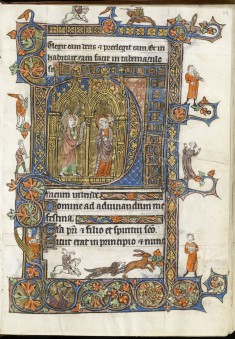 Elegit eam deus ⁊ preelegit eam. Et in
habitare eam facit in tabernaculo
suo
Domine ad adiuuandum me
festina.
Gloria p̄ri ⁊ filio et spiritui sc̄o.
Sicut erat in principio ⁊ nunc